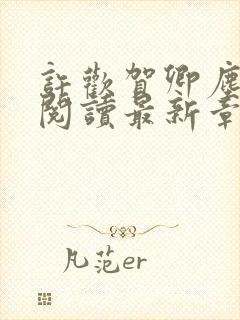 許歡賀卿塵
閱讀最新章
凡范er